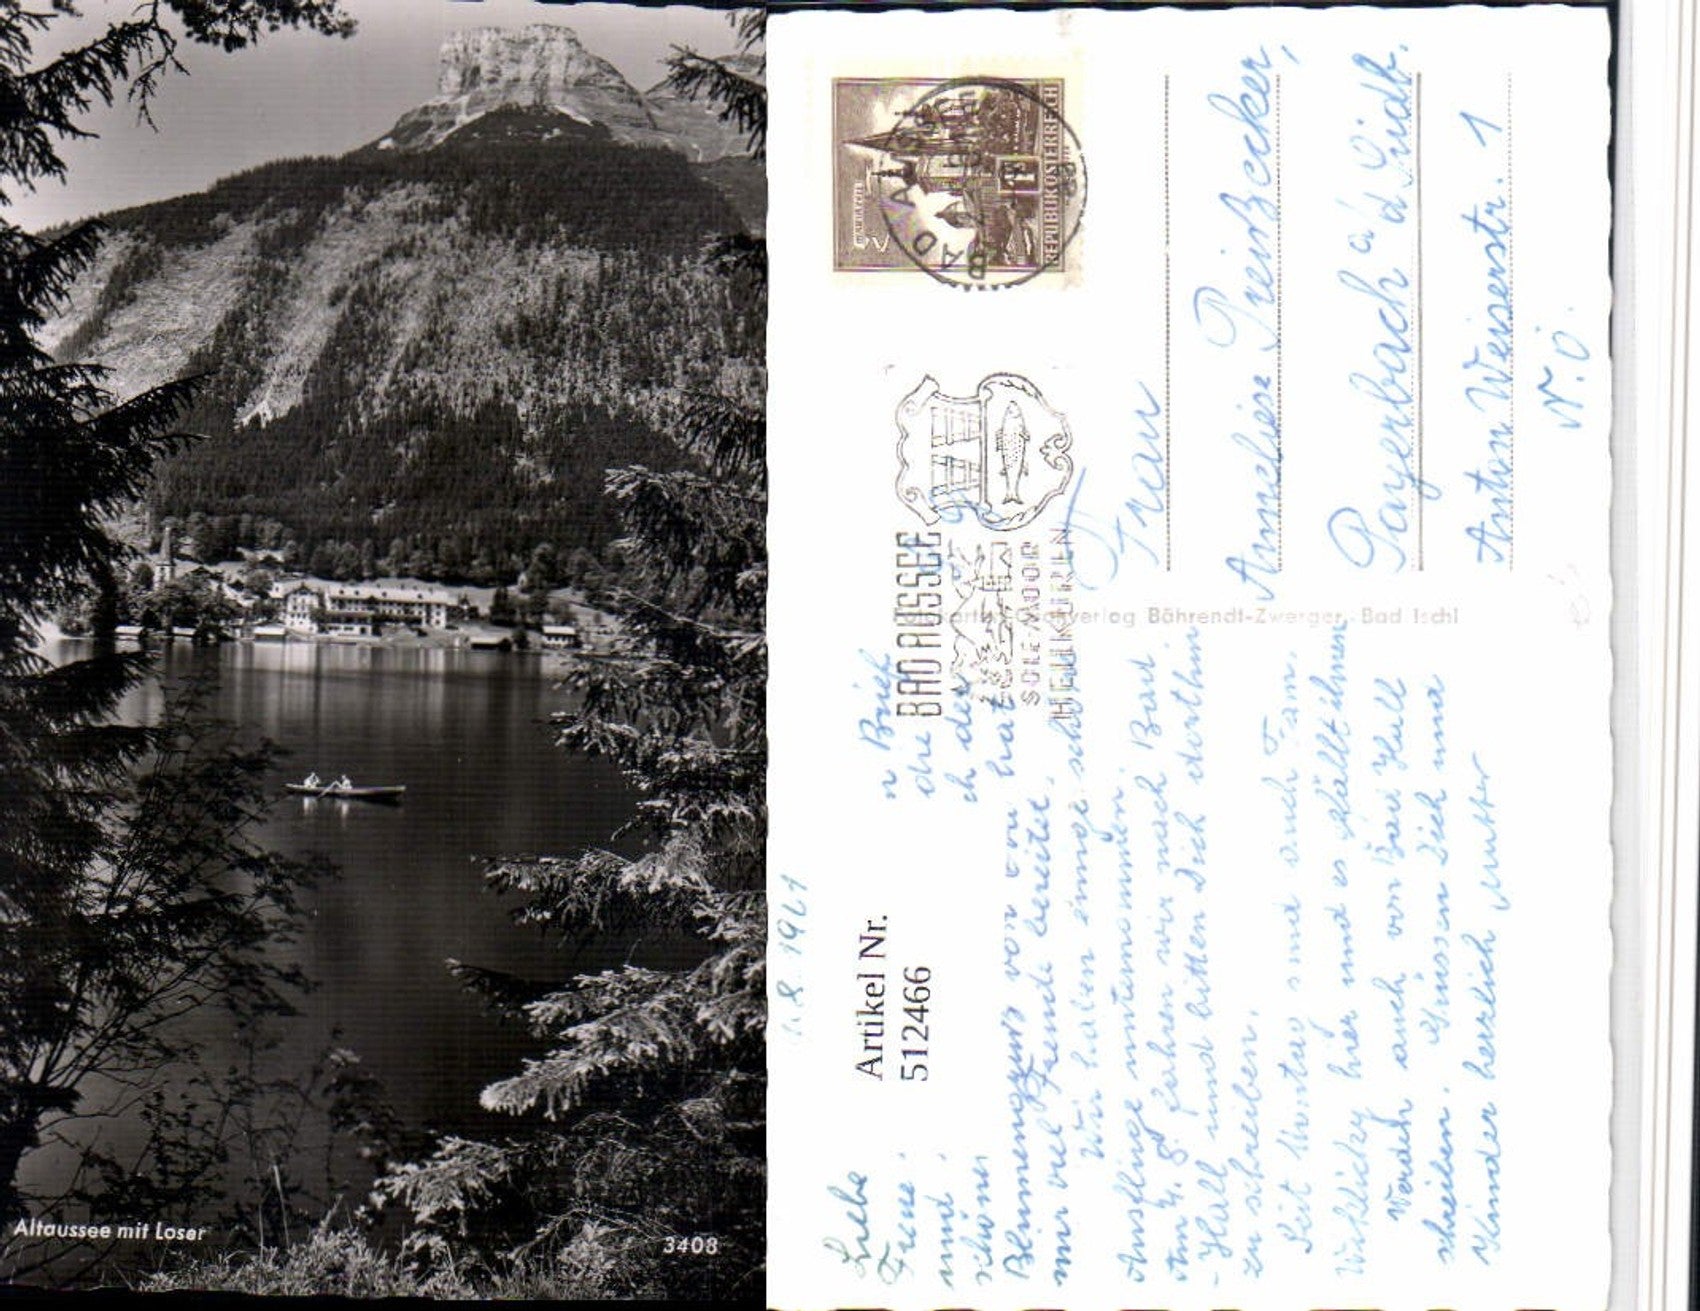 Altaussee mit Loser
3408
REPUBLIK ÖSTERREICH
MARIAZELL
BAD AUSSEE
SOLE/MOOR
HEILKUREN
Verlag Bährendt-Zwerger, Bad Ischl
Artikel Nr.
512466
Frau
Anneliese Preißecker,
Payerbach
Anton Weiserstr. 1
N.Ö.
Liebe
n Brief
und
ch der
schöner
hat
Blumengruß von
mir viel Freude bereitet.
Wir haben einige schöne
Ausflüge unternommen.
Am 4. 8. fahren wir nach Bad
- Hall und bitten Dich dorthin
zu schreiben.
Seit Montag sind auch Fam.
hier und es gefällt ihnen
auch von Bad Hall
schreiben. Grüssen Dich und
Kinder herzlich Mutter